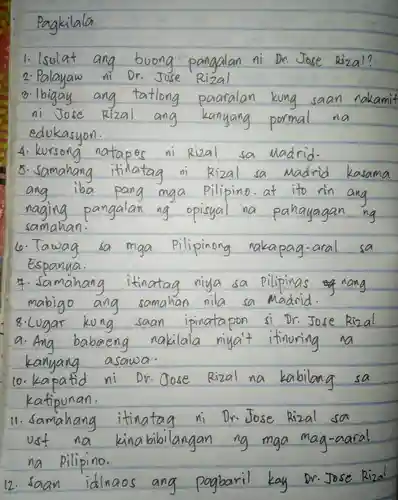 Pagkilala
1. Isulat ang buong pangalan ni Dr. Jose Rizal?
2. Palayaw ni Dr. Jose Rizal
3. Ibigay ang tatlong paaralan kung saan nakamit
ni Jose Rizal ang kanyang pormal na
edukasyon.
4. kursong natapos ni Rizal sa Madrid.
5. samahang itinatag ni Rizal sa Madrid kasama
ang iba pang mga Pilipino. at ito rin ang
naging pangalan ng opisyal na pahayagan ng
samahan.
6. Tawag sa mga Pilipinong nakapag-aral sa
Espanya.
7. Samahang itinatag niya sa Pilipinas nang
mabigo ang samahan nila sa Madrid.
8. Lugar kung saan ipinatapon si Dr. Jose Rizal
9. Ang babaeng nakilala niya't itinuring na
kanyang asawa.
10. kapatid ni Dr. Jose Rizal na kabilang sa
katipunan.
11. Samahang itinatag ni Dr. Jose Rizal sa
ust na kinabibilangan ng mga mag-aaral
na Pilipino.
12. Saan idinaos ang pagbaril kay Dr. Jose Rizal